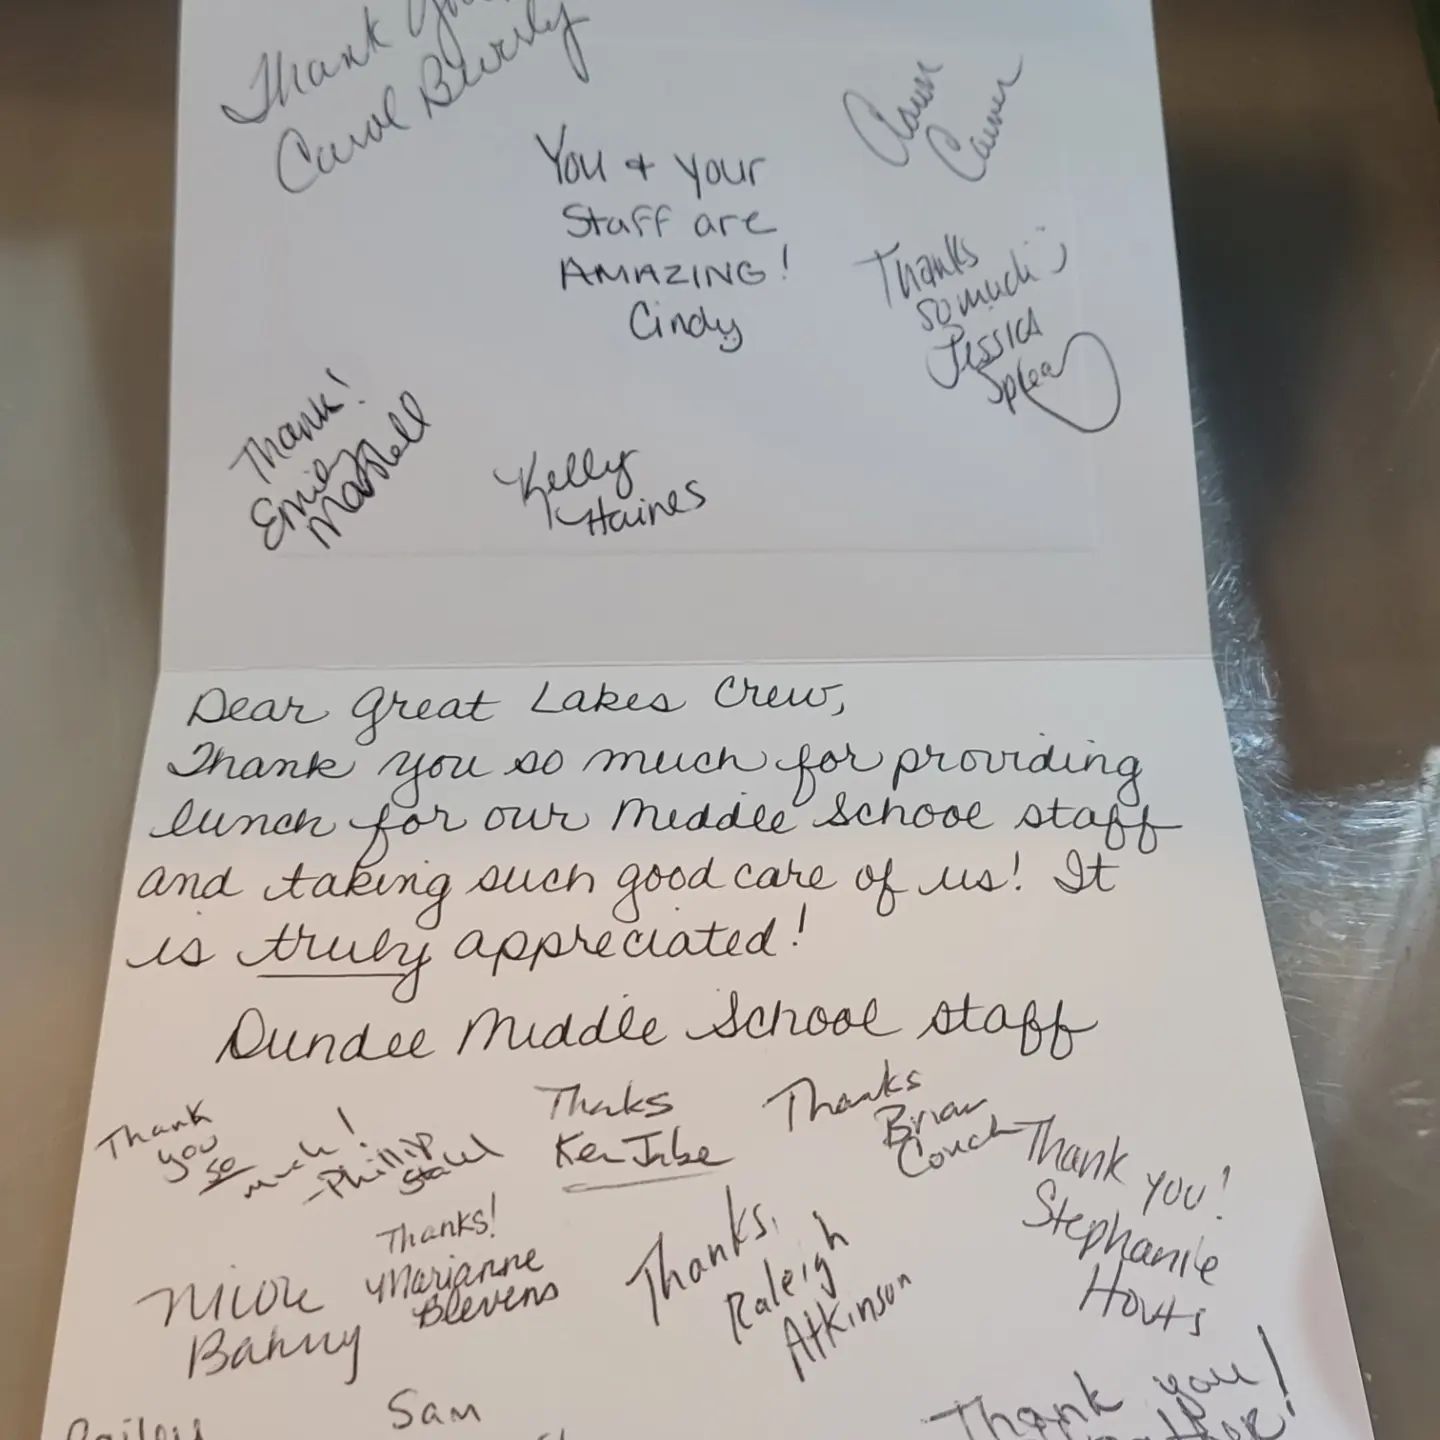 Thank you
Carol Bewsly
You + your
Staff are
AMAZING!
Cindy
Carver
Thanks
so much :)
Jessica
Thank!
Emily
Marshall
Kelly
Haines
Dear Great Lakes Crew,
Thank you so much for providing
lunch for our Middle School staff
and taking such good care of us! It
is truly appreciated!
Dundee Middle School staff
Thank
you
so
much!
-Phillip
Stahl
Thanks
Ken
Thanks
Brian
Couch
Thank you!
Stephanie
Houts
Thanks!
Marianne
Blevens
Nicole
Thanks,
Raleigh
Atkinson
Bailey
Sam
Thank you!